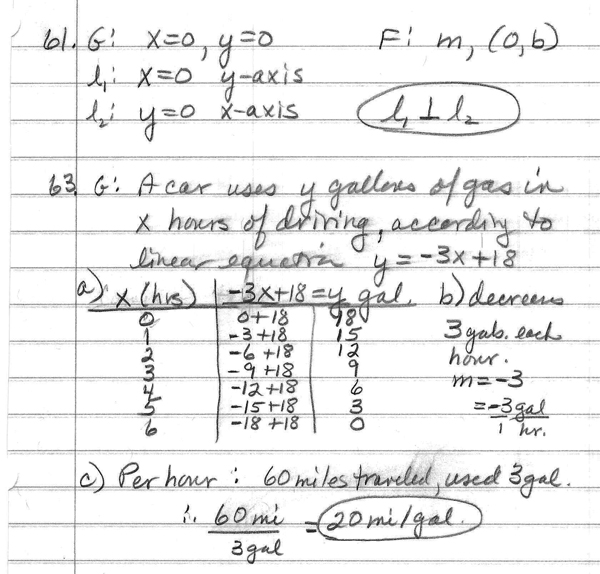 61. G: x=0, y=0 F: m, (0,b)
l₁: x=0 y-axis
l₂: y=0 x-axis l₁ ⊥ l₂
63. G: A car uses y gallons of gas in
x hours of driving, according to
linear equation y = -3x+18
a) x (hrs) | -3x+18 = y gal. b) decreases
0 0+18 18 3 gals. each
1 -3+18 15 hour.
2 -6+18 12
3 -9+18 9 m = -3
4 -12+18 6 = -3 gal / 1 hr.
5 -15+18 3
6 -18+18 0
c) Per hour : 60 miles traveled, used 3gal.
∴ 60 mi / 3 gal = 20 mi/gal.